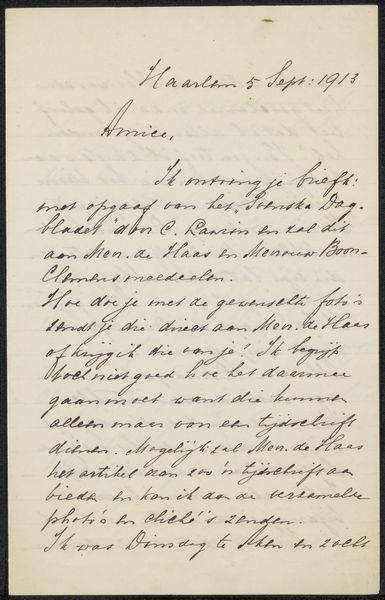 Haarlem 5 Sept: 1913
Amice,
Ik ontving je briefk:
met opgaaf van het "Svenska Dag-
bladet" door C. Laurin en zal dit
aan Mevr. de Haas en Mevrouw Boon-
Clemens meedeelen.
Hoe doe je met de gewenschte foto's
zendt je die direct aan Mevr. de Haas
of krijg ik die van je? Ik begrijp
toch niet goed hoe het daarmee
gaan moet want die kunnen
alleen maar voor een tijdschrift
dienen. Mogelijk zal Mevr. de Haas
het artikel aan zoo'n tijdschrift aan
bieden en kan ik dan de verzamelde
photo's en cliché's zenden.
Ik was Dinsdag te en zocht